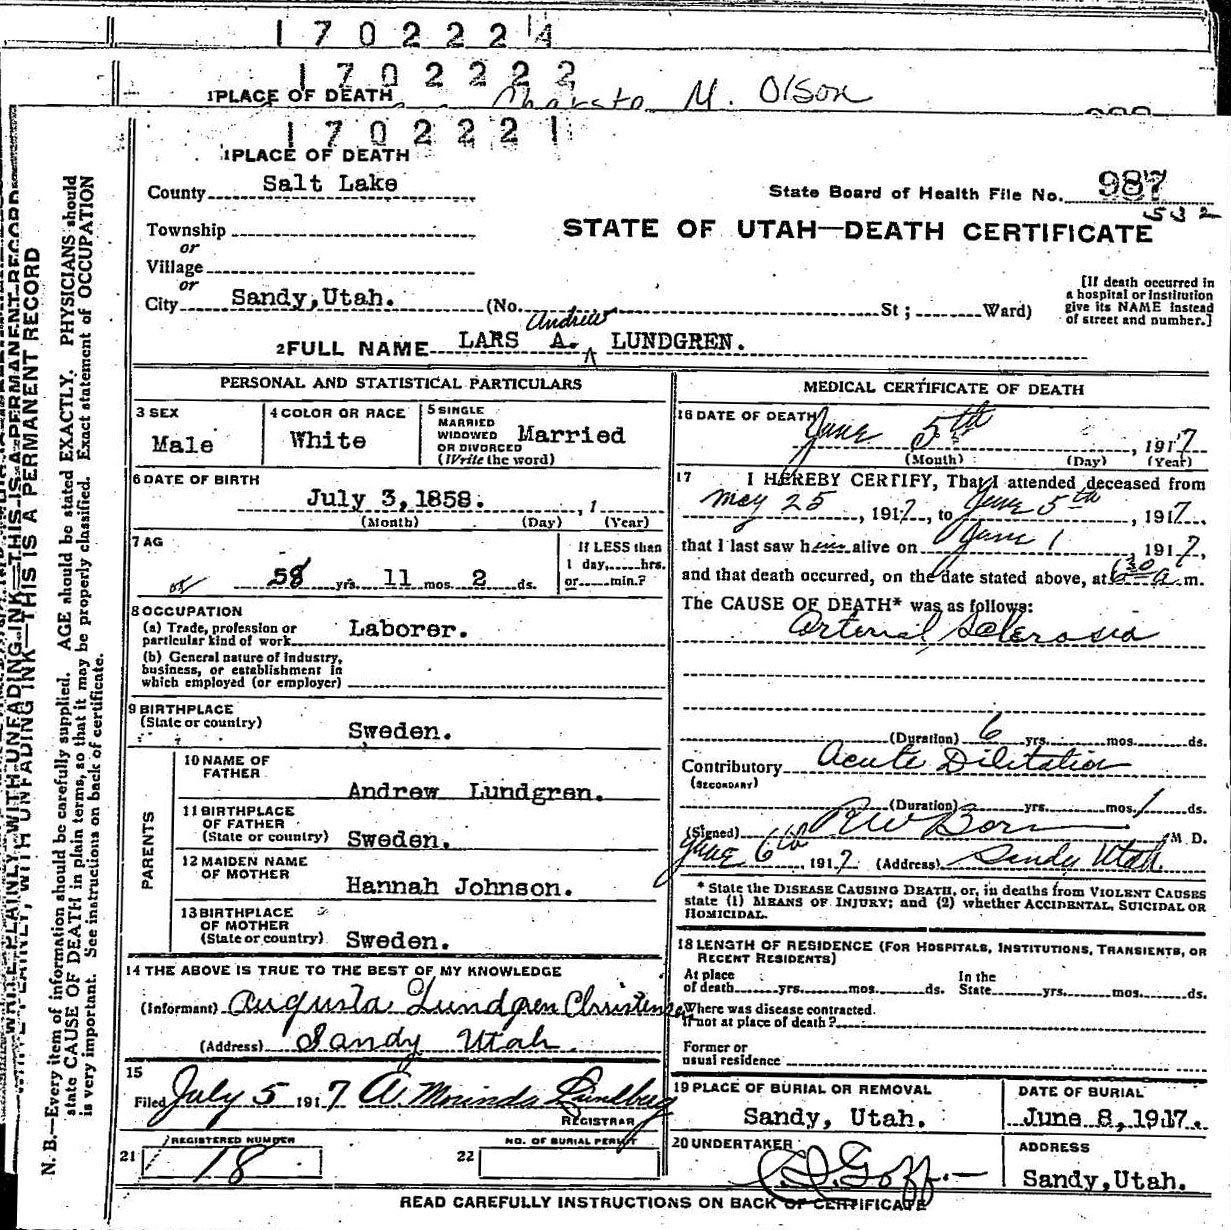 1702224
1702222
1PLACE OF DEATH M. Olson
1702221
1PLACE OF DEATH
County Salt Lake
State Board of Health File No. 987
532
Township
or
STATE OF UTAH—DEATH CERTIFICATE
Village
or
City Sandy, Utah. (No. St; Ward)
[If death occurred in
a hospital or institution
give its NAME instead
of street and number.]
Andrew
2FULL NAME LARS A. ^ LUNDGREN.
PERSONAL AND STATISTICAL PARTICULARS
3 SEX
Male
4 COLOR OR RACE
White
5 SINGLE
MARRIED
WIDOWED
OR DIVORCED
(Write the word)
Married
6 DATE OF BIRTH
July 3, 1858. , 1
(Month) (Day) (Year)
7 AG
58 yrs. 11 mos. 2 ds.
If LESS than
1 day, hrs.
or min.?
8 OCCUPATION
(a) Trade, profession or
particular kind of work Laborer.
(b) General nature of industry,
business, or establishment in
which employed (or employer)
9 BIRTHPLACE
(State or country)
Sweden.
PARENTS
10 NAME OF
FATHER
Andrew Lundgren.
11 BIRTHPLACE
OF FATHER
(State or country) Sweden.
12 MAIDEN NAME
OF MOTHER
Hannah Johnson.
13 BIRTHPLACE
OF MOTHER
(State or country) Sweden.
14 THE ABOVE IS TRUE TO THE BEST OF MY KNOWLEDGE
(Informant) Augusta Lundgren Christensen
(Address) Sandy Utah.
15
Filed July 5 1917 A. Morinda Lundberg
REGISTRAR
REGISTERED NUMBER
21 18
NO. OF BURIAL PERMIT
22
MEDICAL CERTIFICATE OF DEATH
16 DATE OF DEATH
June 5th , 1917
(Month) (Day) (Year)
17 I HEREBY CERTIFY, That I attended deceased from
May 25 , 1917, to June 5th , 1917.
that I last saw him alive on June 1 , 1917,
and that death occurred, on the date stated above, at 6 30 a m.
The CAUSE OF DEATH* was as follows:
Arterial Sclerosis
(Duration) 6 yrs. mos. ds.
Contributory Acute Dilitation
(SECONDARY)
(Duration) yrs. mos. 1 ds.
(Signed) RW Born M D.
June 6th , 1917 (Address) Sandy Utah.
* State the DISEASE CAUSING DEATH, or, in deaths from VIOLENT CAUSES
state (1) MEANS OF INJURY; and (2) whether ACCIDENTAL, SUICIDAL OR
HOMICIDAL.
18 LENGTH OF RESIDENCE (FOR HOSPITALS, INSTITUTIONS, TRANSIENTS, OR
RECENT RESIDENTS)
At place
of death yrs. mos. ds.
In the
State yrs. mos. ds.
Where was disease contracted.
if not at place of death?
Former or
usual residence
19 PLACE OF BURIAL OR REMOVAL
Sandy, Utah.
DATE OF BURIAL
June 8, 1917.
20 UNDERTAKER
Goff
ADDRESS
Sandy, Utah.
READ CAREFULLY INSTRUCTIONS ON BACK OF CERTIFICATE
WRITE PLAINLY, WITH UNFADING INK—THIS IS A PERMANENT RECORD
N. B.—Every item of information should be carefully supplied. AGE should be stated EXACTLY. PHYSICIANS should
state CAUSE OF DEATH in plain terms, so that it may be properly classified. Exact statement of OCCUPATION
is very important. See instructions on back of certificate.